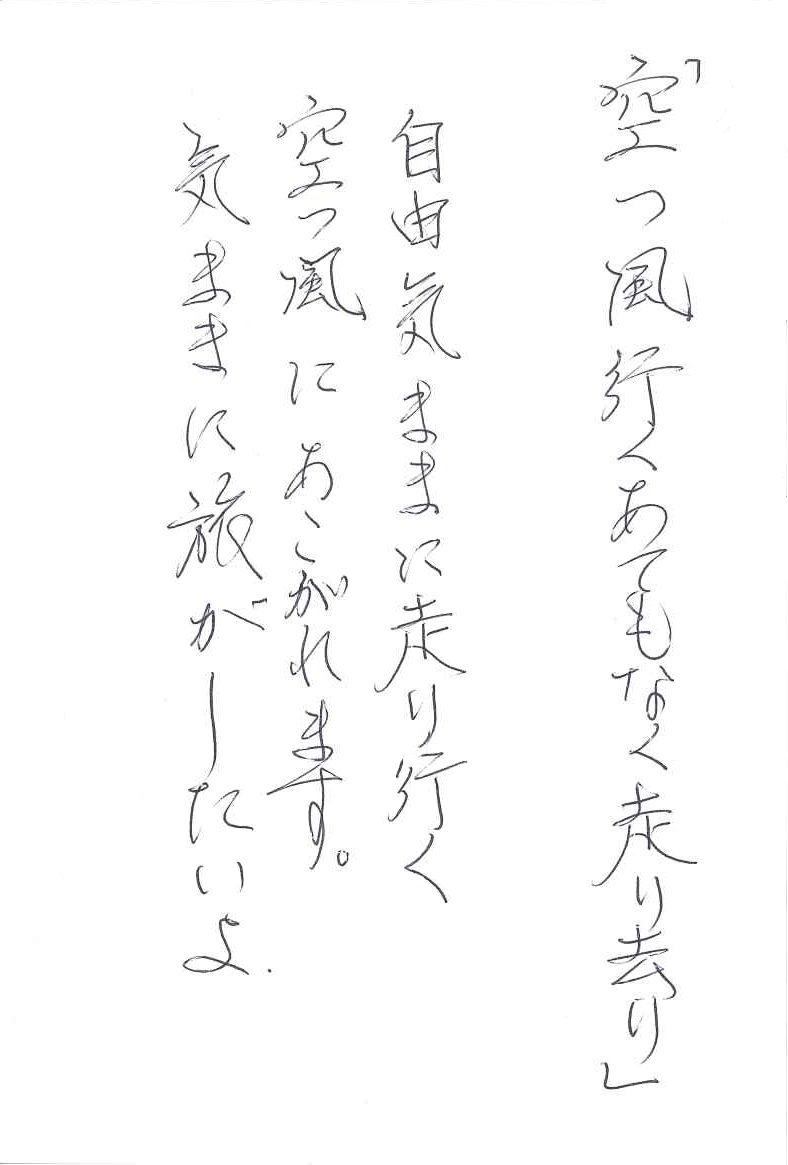 「空っ風行くあてもなく走り去り」
自由気ままに走り行く
空っ風にあこがれます。
気ままに旅がしたいよ.